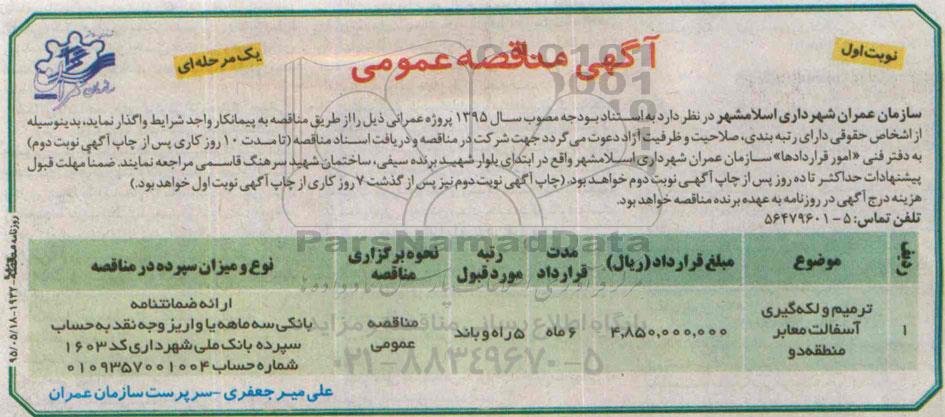 آگهی مناقصه عمومی
نوبت اول
یک مرحله‌ای
سازمان عمران شهرداری اسلامشهر در نظر دارد به استناد بودجه مصوب سال ۱۳۹۵ پروژه عمرانی ذیل را از طریق مناقصه به پیمانکار واجد شرایط واگذار نماید، بدینوسیله
از اشخاص حقوقی دارای رتبه بندی، صلاحیت و ظرفیت آزاد دعوت می گردد جهت شرکت در مناقصه و دریافت اسناد مناقصه (تا مدت ۱۰ روز کاری پس از چاپ آگهی نوبت دوم)
به دفتر فنی «امور قراردادها» سازمان عمران شهرداری اسلامشهر واقع در ابتدای بلوار شهید برنده سیفی، ساختمان شهید سرهنگ قاسمی مراجعه نمایند. ضمناً مهلت قبول
پیشنهادات حداکثر تا ده روز پس از چاپ آگهی نوبت دوم خواهد بود. (چاپ آگهی نوبت دوم نیز پس از گذشت ۷ روز کاری از چاپ آگهی نوبت اول خواهد بود.)
هزینه درج آگهی در روزنامه به عهده برنده مناقصه خواهد بود.
تلفن تماس: ۵-۵۶۴۷۹۶۰۱
ParsNamadData
ردیف موضوع مبلغ قرارداد (ریال) مدت قرارداد رتبه مورد قبول نحوه برگزاری مناقصه نوع و میزان سپرده در مناقصه
۱ ترمیم و لکه گیری
آسفالت معابر
منطقه دو
۴,۸۵۰,۰۰۰,۰۰۰
۶ ماه
۵ راه و باند
مناقصه
عمومی
ارائه ضمانتنامه
بانکی سه ماهه یا واریز وجه نقد به حساب
سپرده بانک ملی شهرداری کد ۱۶۰۳
شماره حساب ۰۱۰۹۳۵۷۰۰۱۰۰۴
پایگاه اطلاع رسانی مناقصه و مزایده
۰۲۱-۸۸۳۴۹۶۷۰-۵
علی میر جعفری - سرپرست سازمان عمران